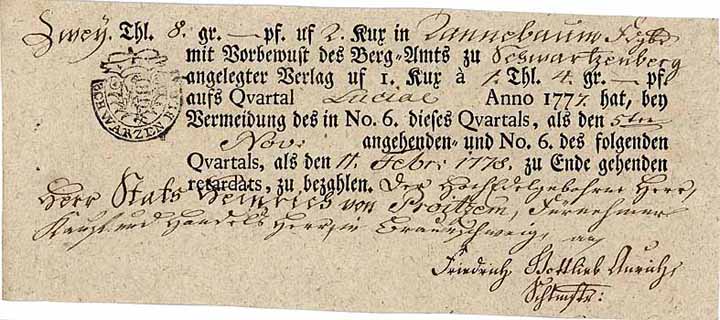 Zwey. Thl. 8. gr. — pf. uf 2. Kux in Tannebaum Fdgr.
mit Vorbewust des Berg-Amts zu Schwartzenberg
angelegter Verlag uf 1. Kux à 1. Thl. 4. gr. — pf.
aufs Qvartal Luciae Anno 1777. hat, bey
Vermeidung des in No. 6. dieses Qvartals, als den 5ten
Nov: angehenden- und No. 6. des folgenden
Qvartals, als den 11. Febr: 1778. zu Ende gehenden
retardats, zu bezahlen. Der HochEdelgebohrne Herr,
Herr Stats Heinrich von Proitzem, Fürnehmer
Kauf- und Handels Herr, in Braunschweig, an
Friedrich Gottlieb Aurich,
Schtmstr:
SCHWARZENBERG